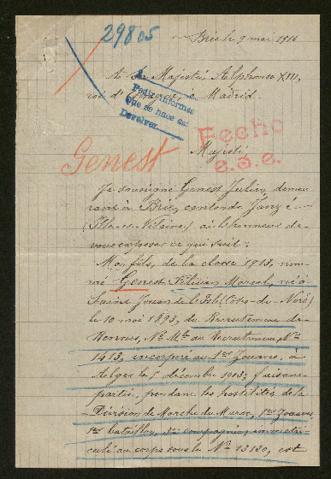 29805
Brie le 9 mai 1916
A Sa Majesté Alphonse XIII,
roi d'Espagne, à Madrid.
Pedir informes
que se hace así
Devolver
Fecho
Genest
Majesté
Je soussigné Genest Julien, demeu
rant à Brie, canton de Janzé
(Ille-et-Vilaine) ai l'honneur de
vous exposer ce qui suit:
Mon fils, de la classe 1913, nom
mé Genest Marcel, né à
Saint Jouan de l'Isle (Côtes-du-Nord)
le 10 mai 1893, du Recrutement de
Rennes, No Mle au recrutement, No
1413, incorporé au 1er Zouaves, à
Alger le 1 décembre 1913, faisant
partie, pendant les hostilités de la
Division de Marche du Maroc, 1er Zouaves
1er bataillon, 3e compagnie, immatri-
culé au corps sous le No 13180, est